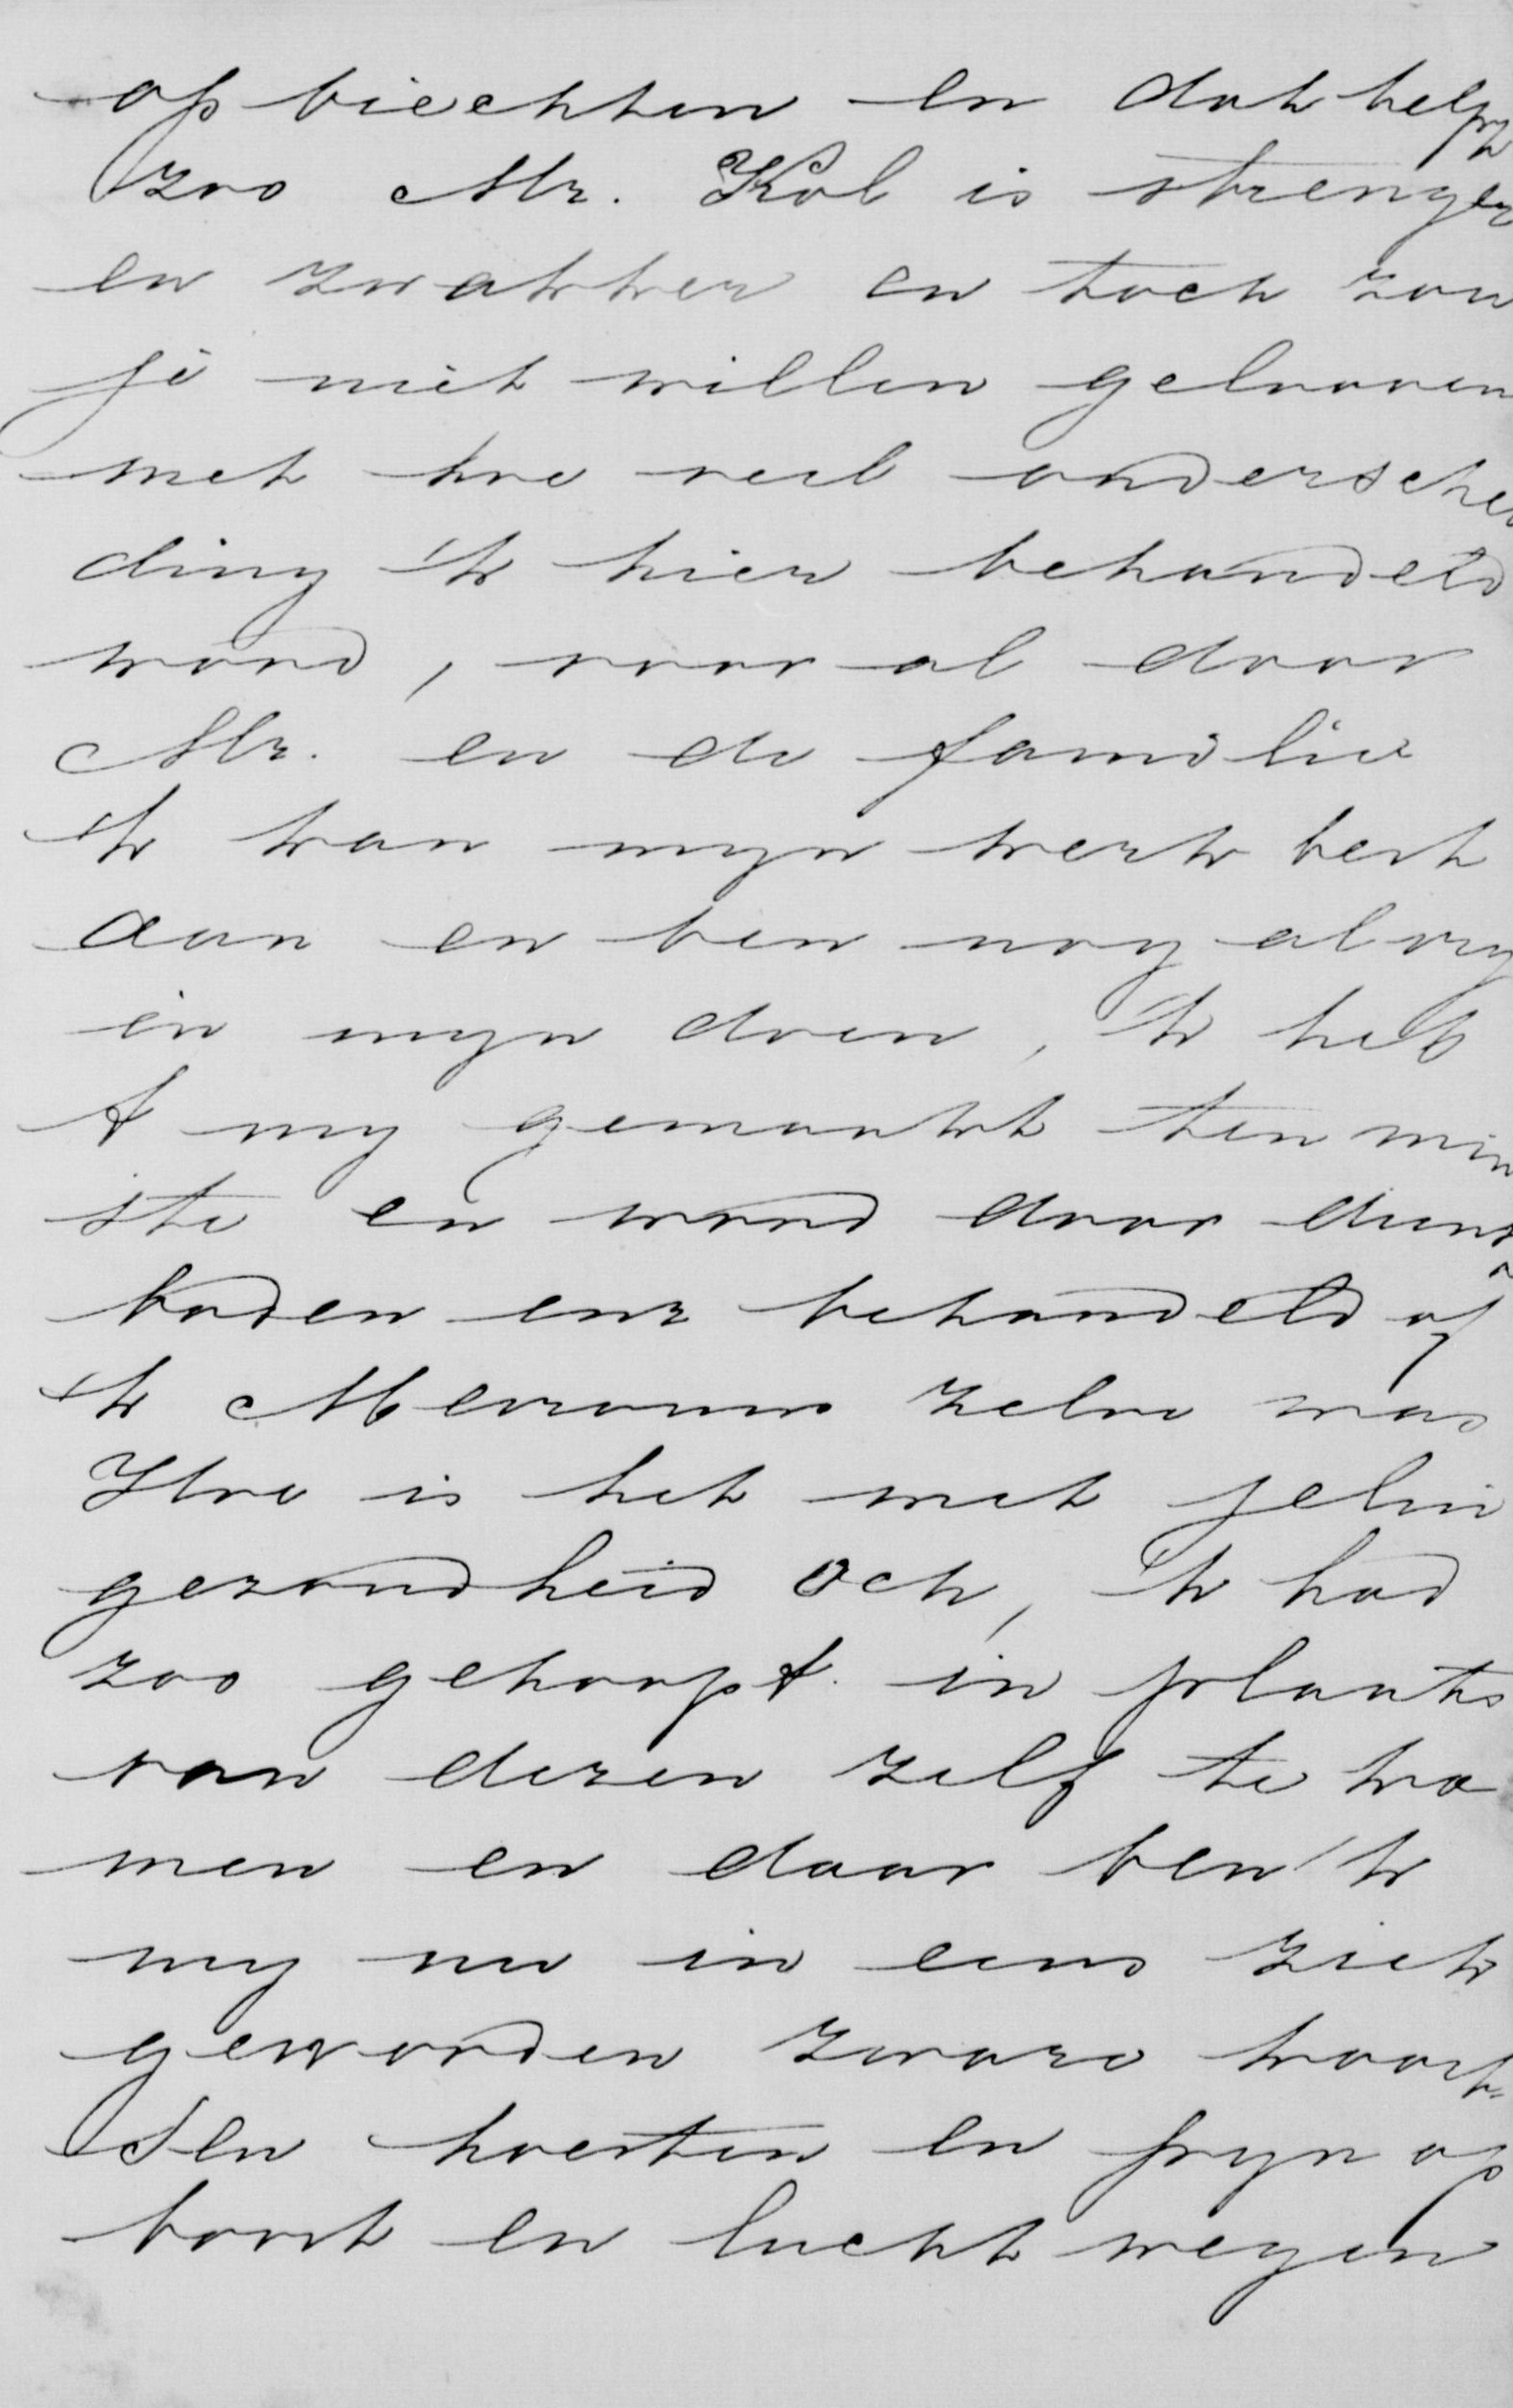 op biechten en dat helpt
zoo Mr. Kol is strenger
en zwakker en toch zou
je niet willen gelooven
met hoe veel onderschei
ding ik hier behandeld
word, voor al door
Mr. en de familie
ik kan myn werk best
aan en ben nog al vry
in myn doen, ik heb
't my gemaakt ten min
ste en word door dienst
boden enz behandeld of
ik Mevrouw zelve was
Hoe is het met jelui
gezondheid och, ik had
zoo gehoopt in plaats
van dezen zelf te ko
men en daar ben ik
my nu in eens ziek
geworden zware koort
sen hoesten en pyn op
borst en lucht wegen